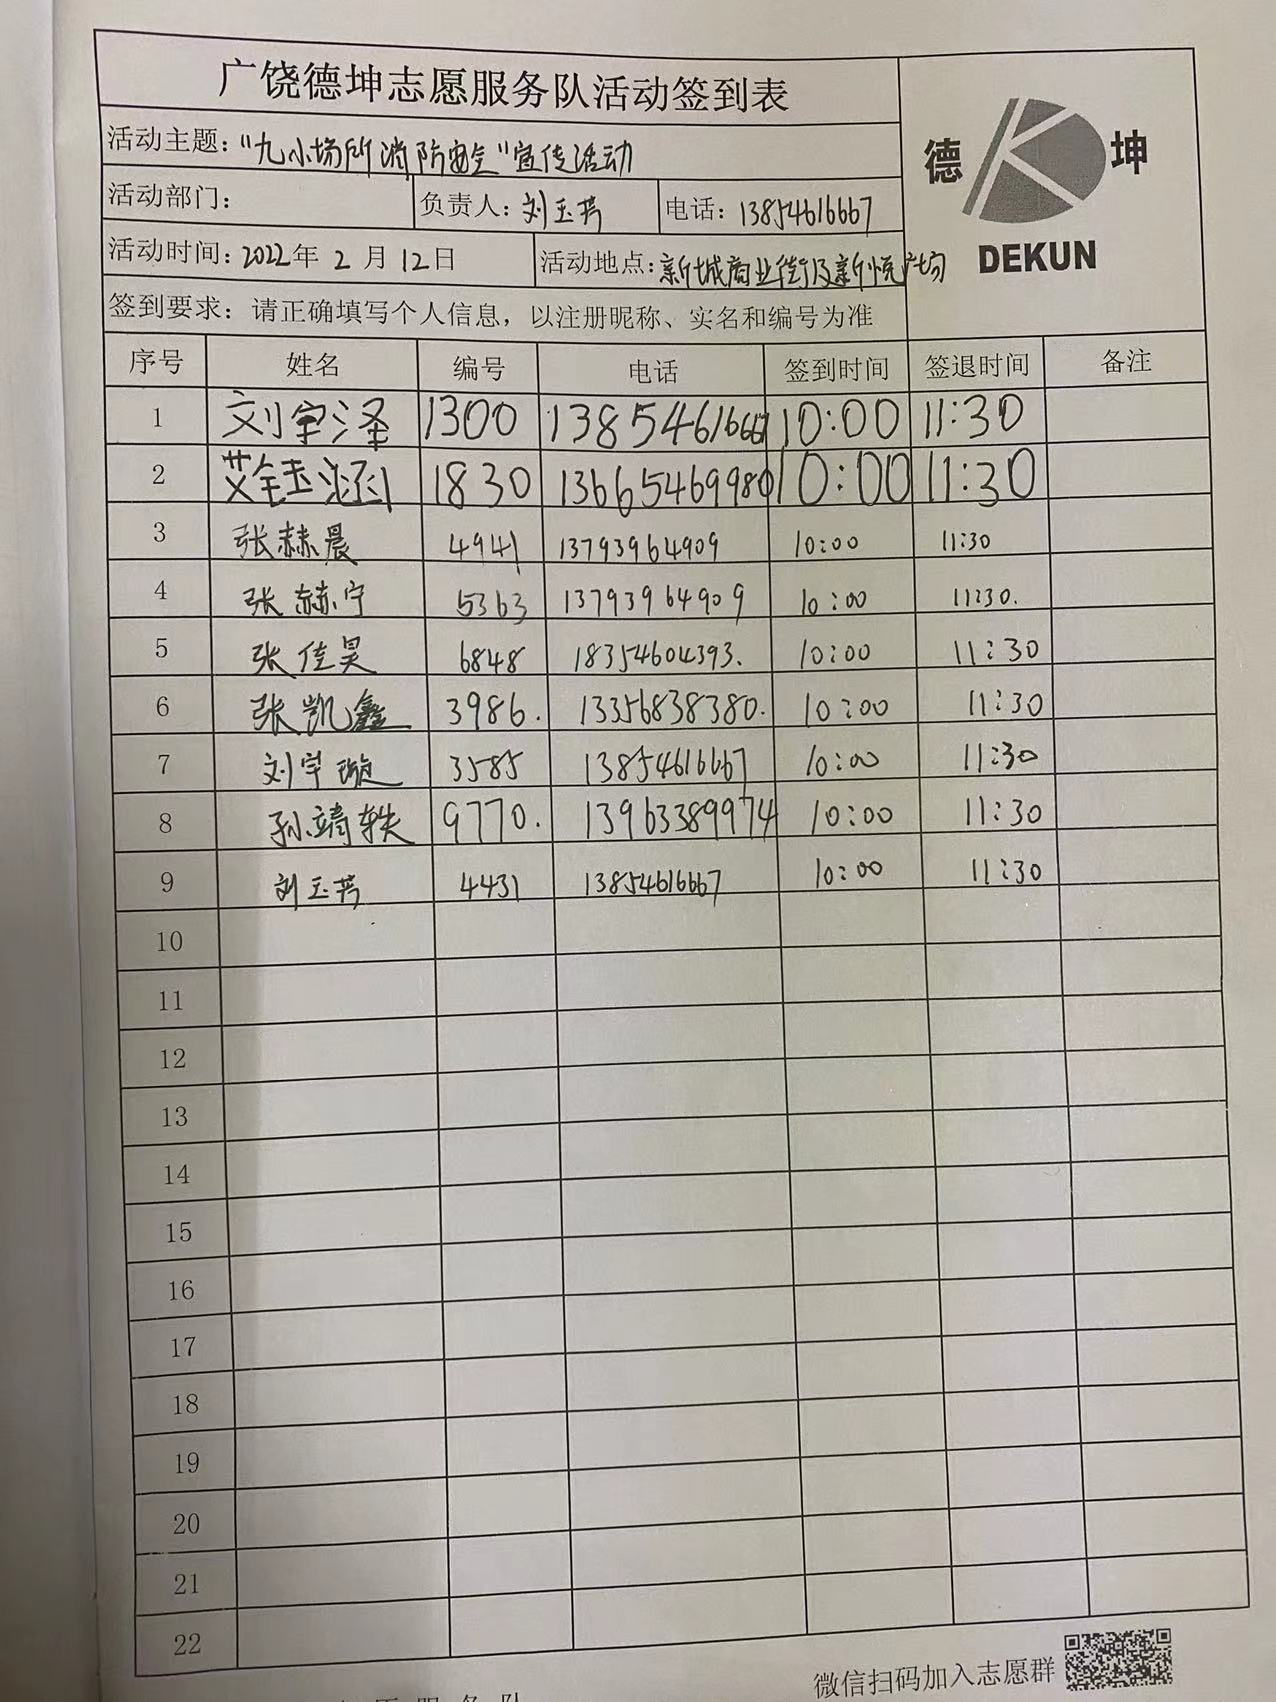 广饶德坤志愿服务队活动签到表
德 坤
DEKUN
活动主题：“九小场所消防安全”宣传活动
活动部门： 负责人：刘玉芳 电话：13854616667
活动时间：2022年 2 月 12日 活动地点：新城商业街及新悦广场
签到要求：请正确填写个人信息，以注册昵称、实名和编号为准
序号 姓名 编号 电话 签到时间 签退时间 备注
1 刘宇泽 1300 13854616667 10:00 11:30
2 艾钰涵 1830 13665469980 10:00 11:30
3 张赫晨 4941 13793964909 10:00 11:30
4 张赫宁 5363 13793964909 10:00 11:30.
5 张佳昊 6848 18354604393. 10:00 11:30
6 张凯鑫 3986. 13356838380. 10:00 11:30
7 刘宇璇 3585 13854616667 10:00 11:30
8 孙靖轶 9770. 13963389974 10:00 11:30
9 刘玉芳 4431 13854616667 10:00 11:30
10
11
12
13
14
15
16
17
18
19
20
21
22
微信扫码加入志愿群
愿服务队